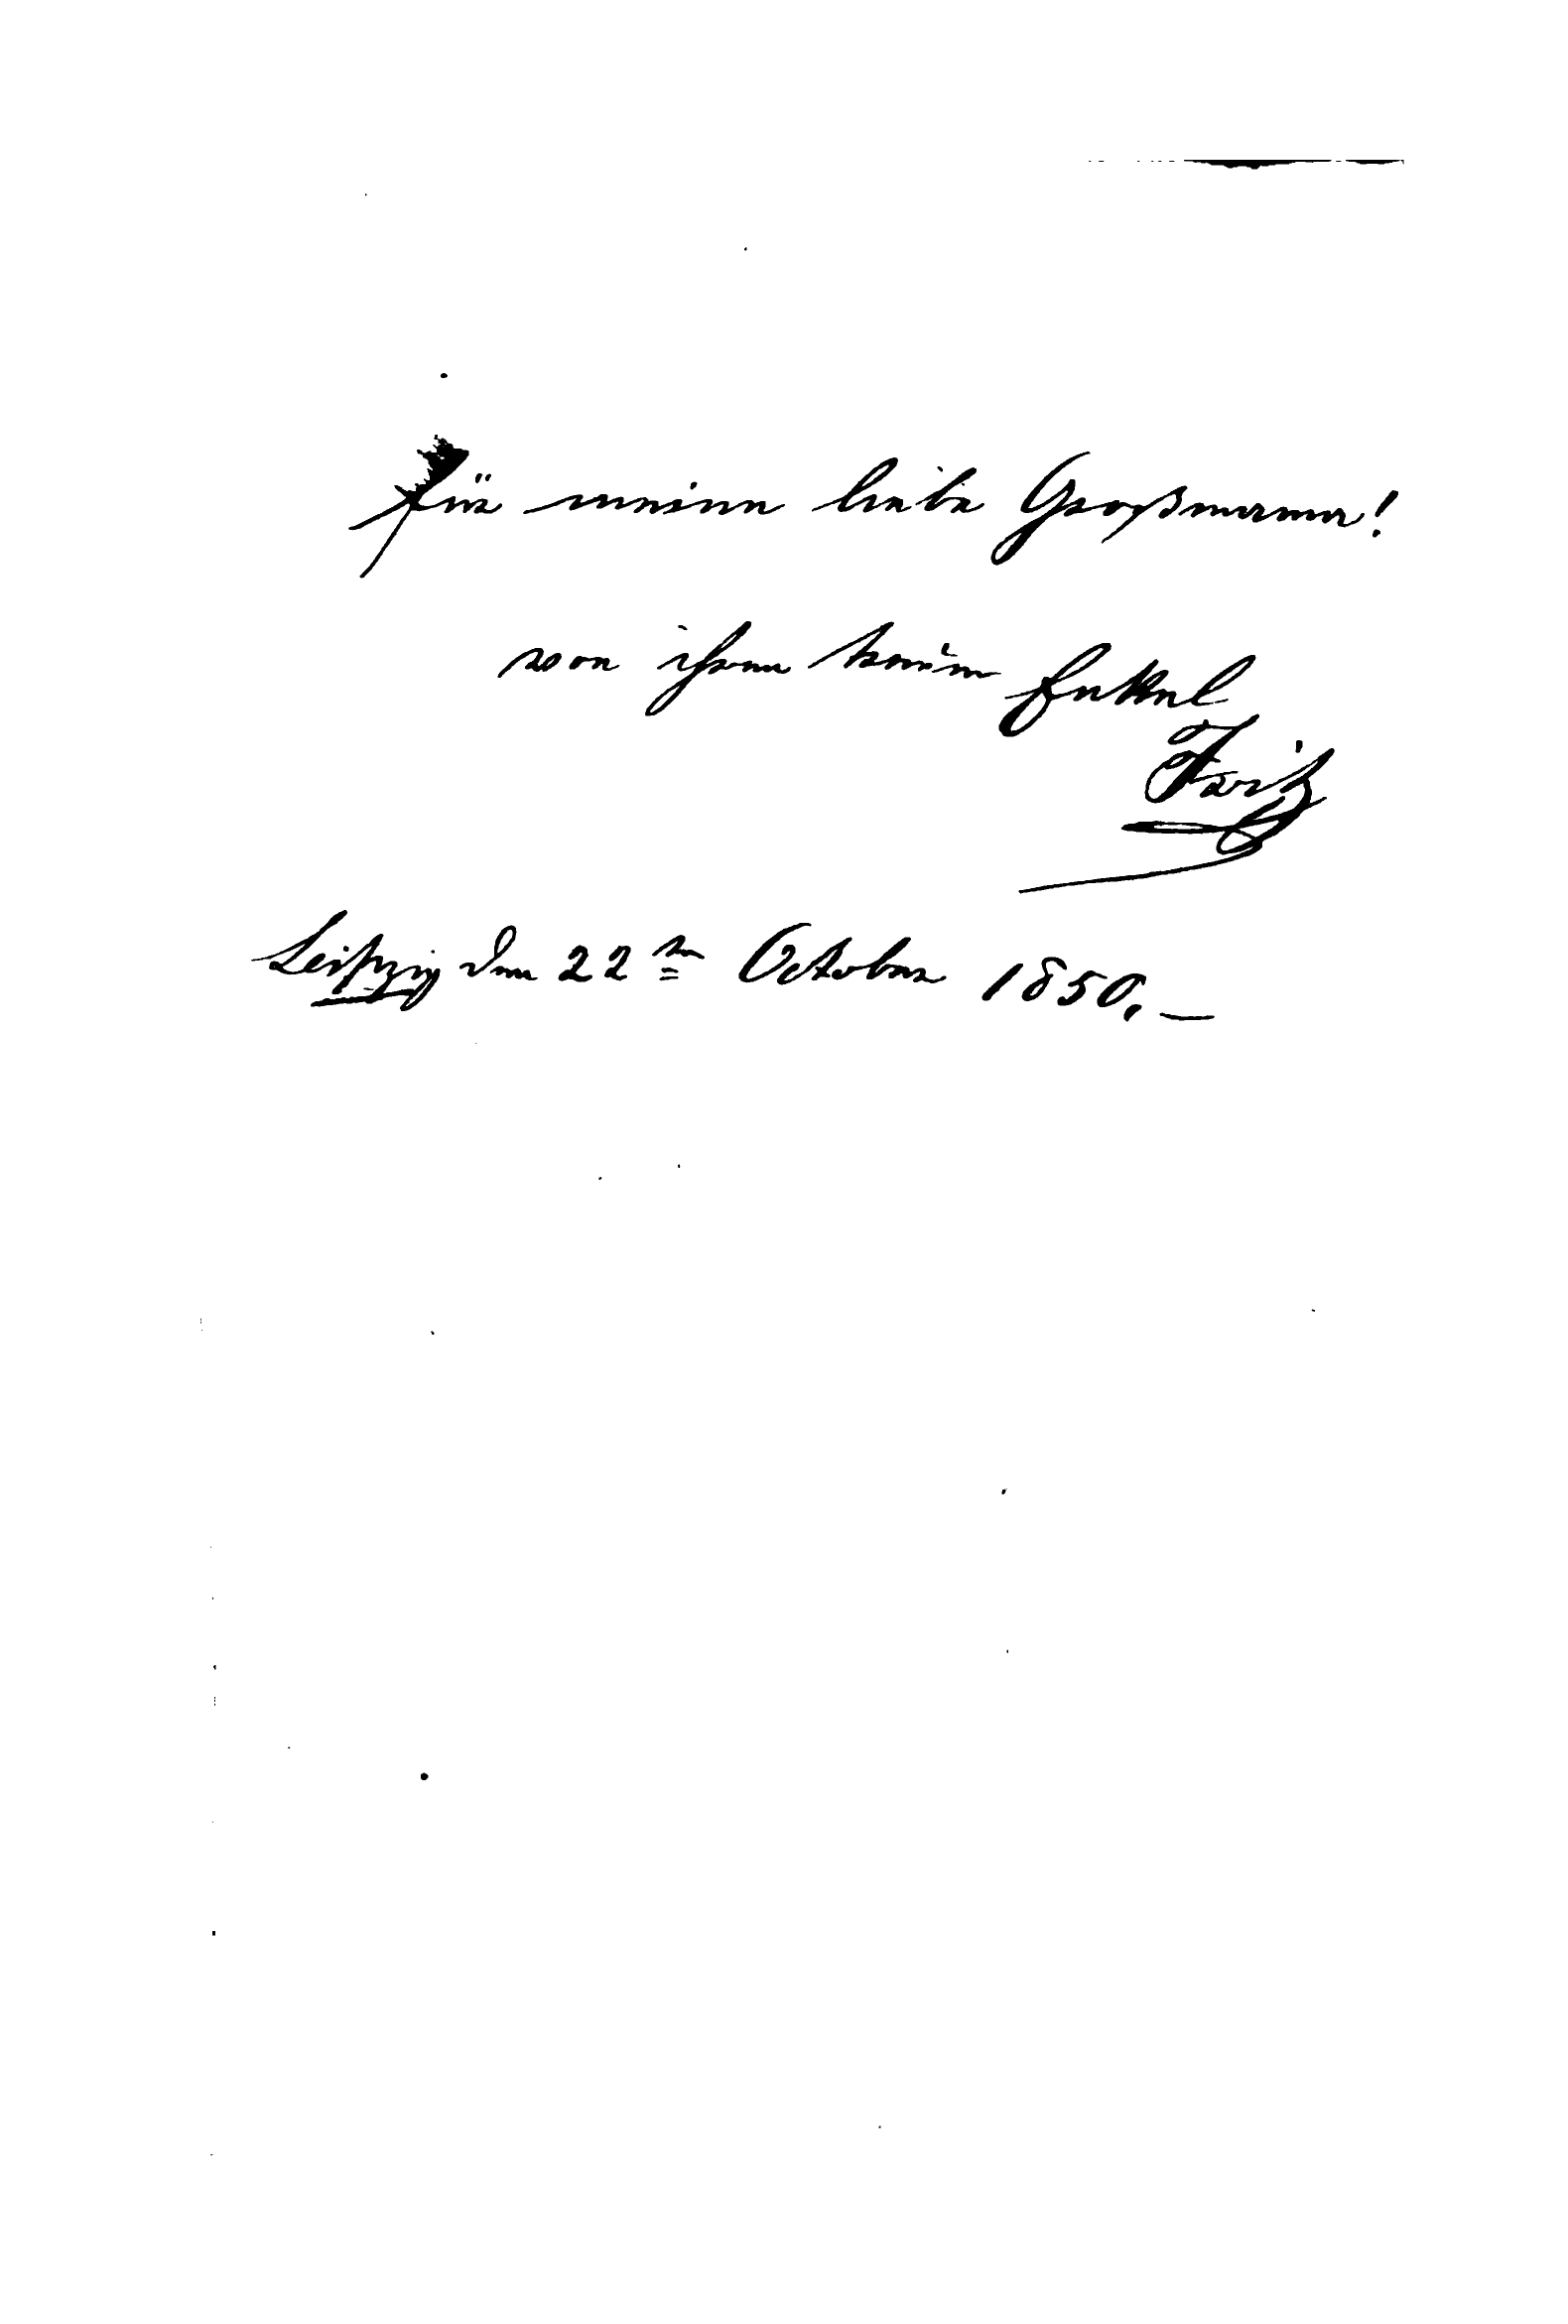 Für meine liebe Großmama!
von ihrem treuen Enkel
Fritz
Leipzig den 22ten October 1850. —